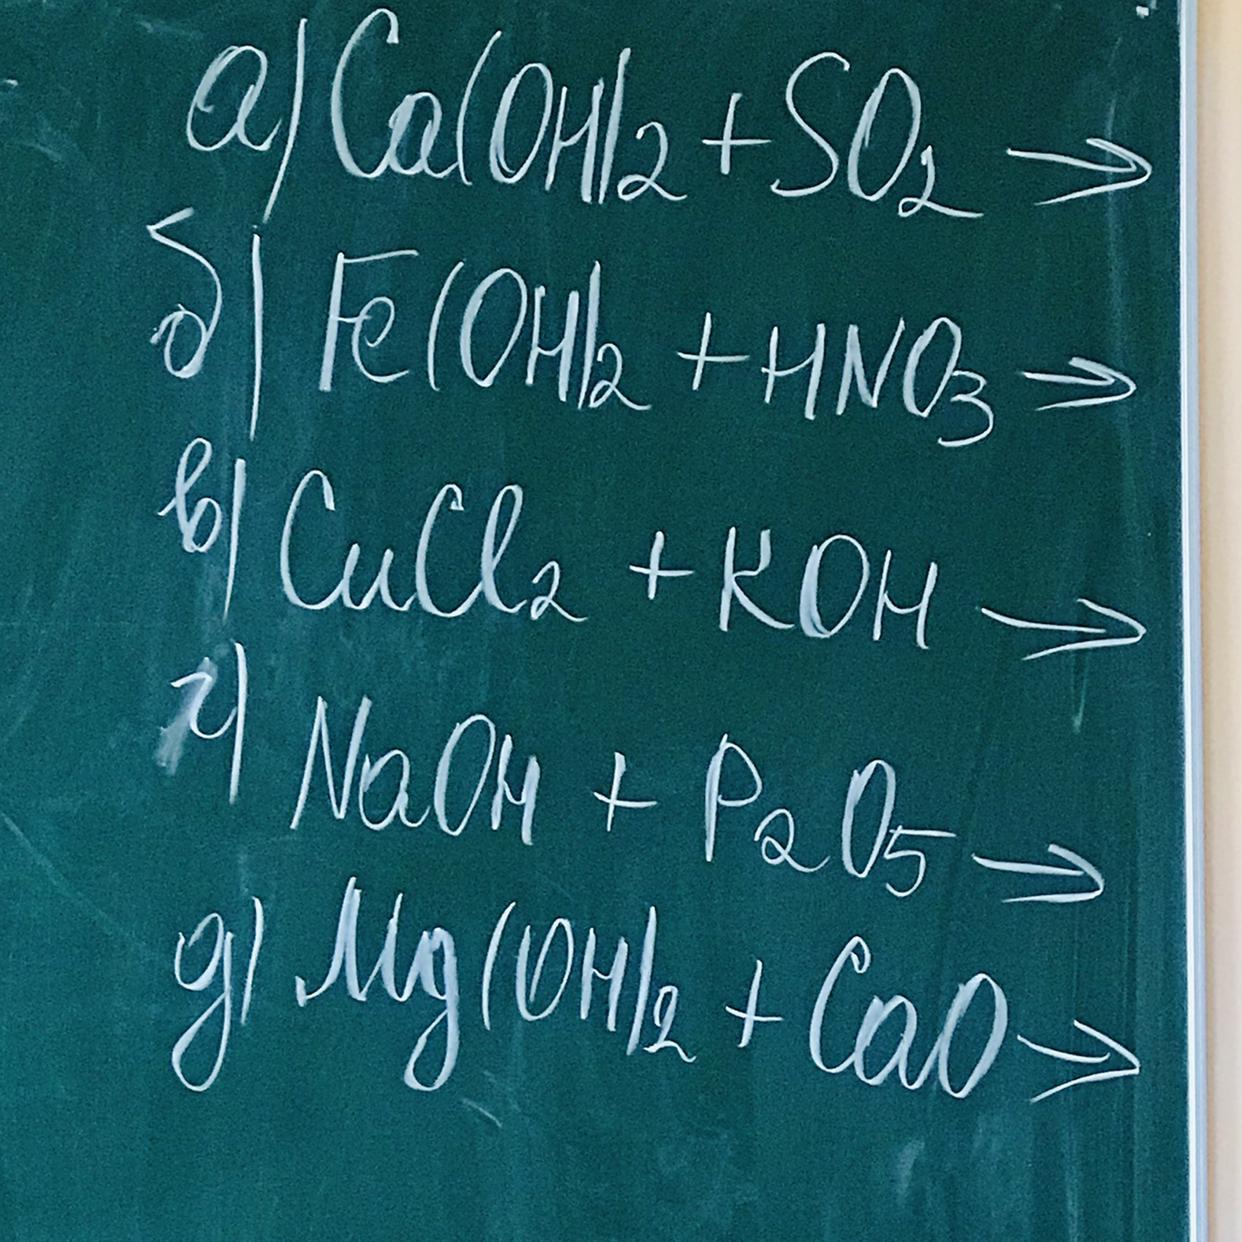 а) Ca(OH)2 + SO2 →
б) Fe(OH)2 + HNO3 →
в) CuCl2 + KOH →
г) NaOH + P2O5 →
д) Mg(OH)2 + CaO →